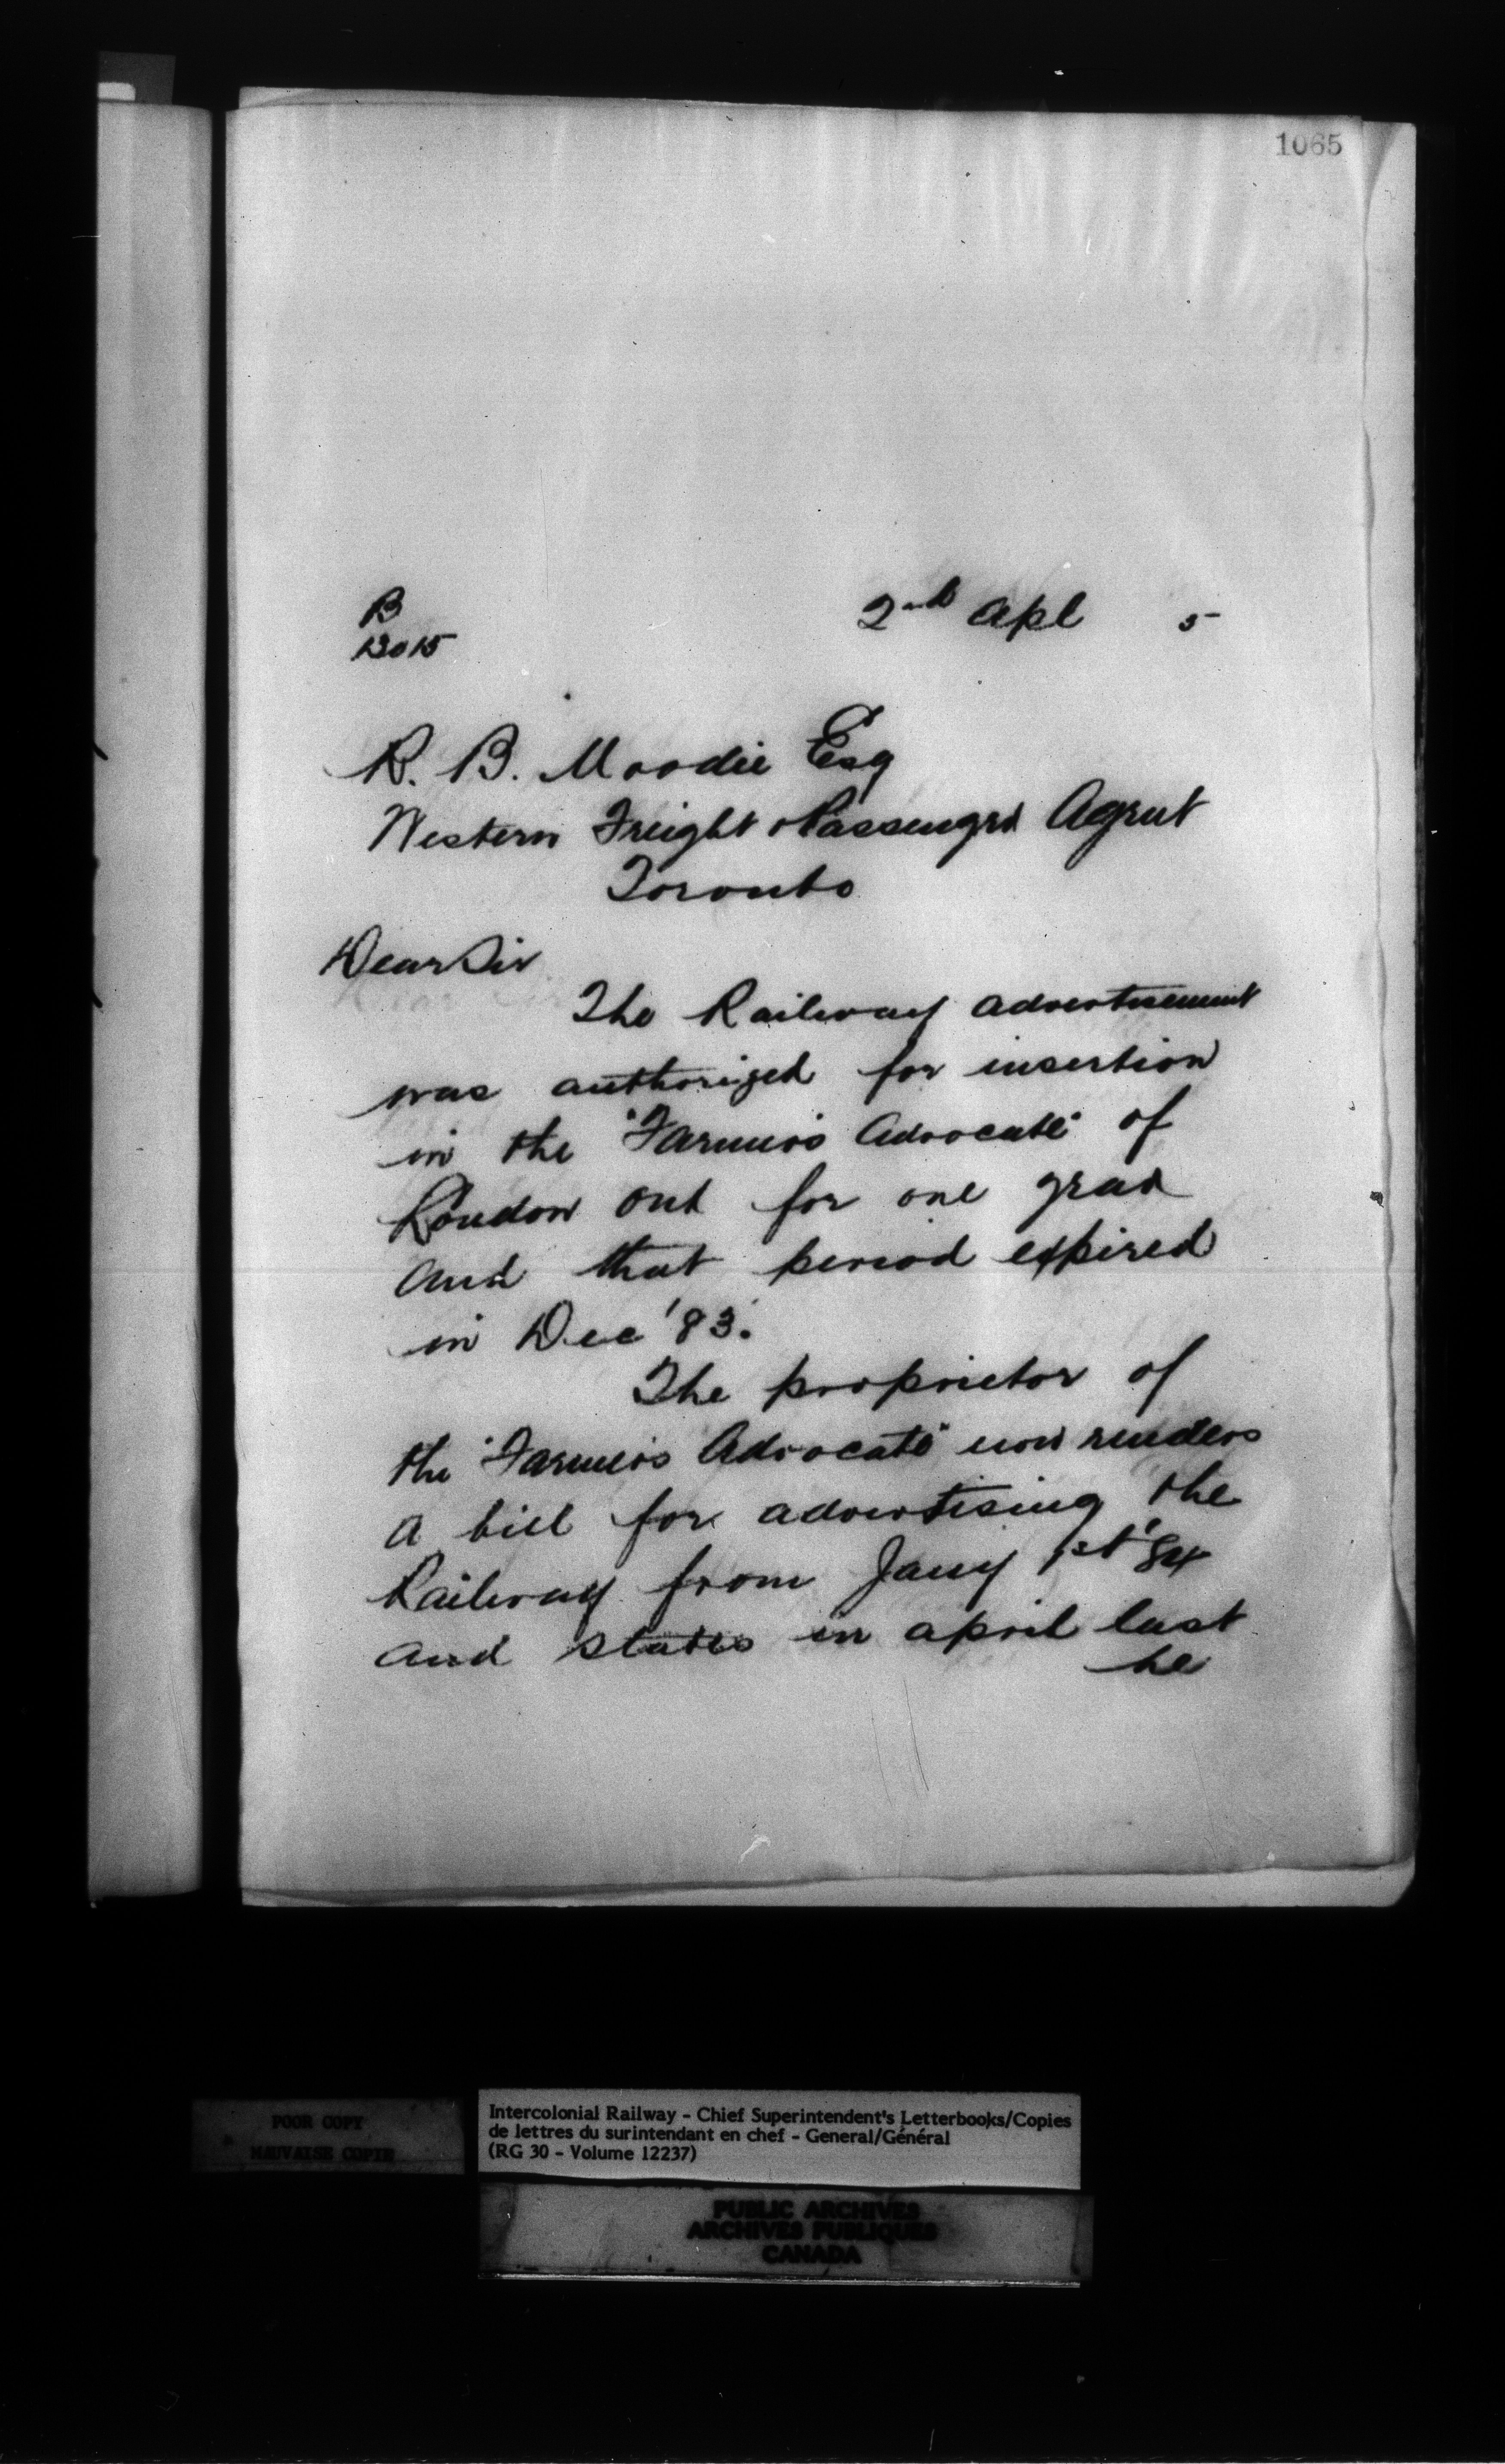 1065
B
13015
2nd Apl 5
R. B. Moodie Esq
Western Freight & Passenger Agent
Toronto
Dear Sir
The Railway advertisement
was authorized for insertion
in the "Farmers Advocate" of
London Ont for one year
and that period expired
in Dec '83.
The proprietor of
the "Farmers Advocate" now renders
a bill for advertising the
Railway from Jany 1st '84
and states in april last
he
POOR COPY
MAUVAISE COPIE
Intercolonial Railway - Chief Superintendent's Letterbooks/Copies
de lettres du surintendant en chef - General/Général
(RG 30 - Volume 12237)
PUBLIC ARCHIVES
ARCHIVES PUBLIQUES
CANADA